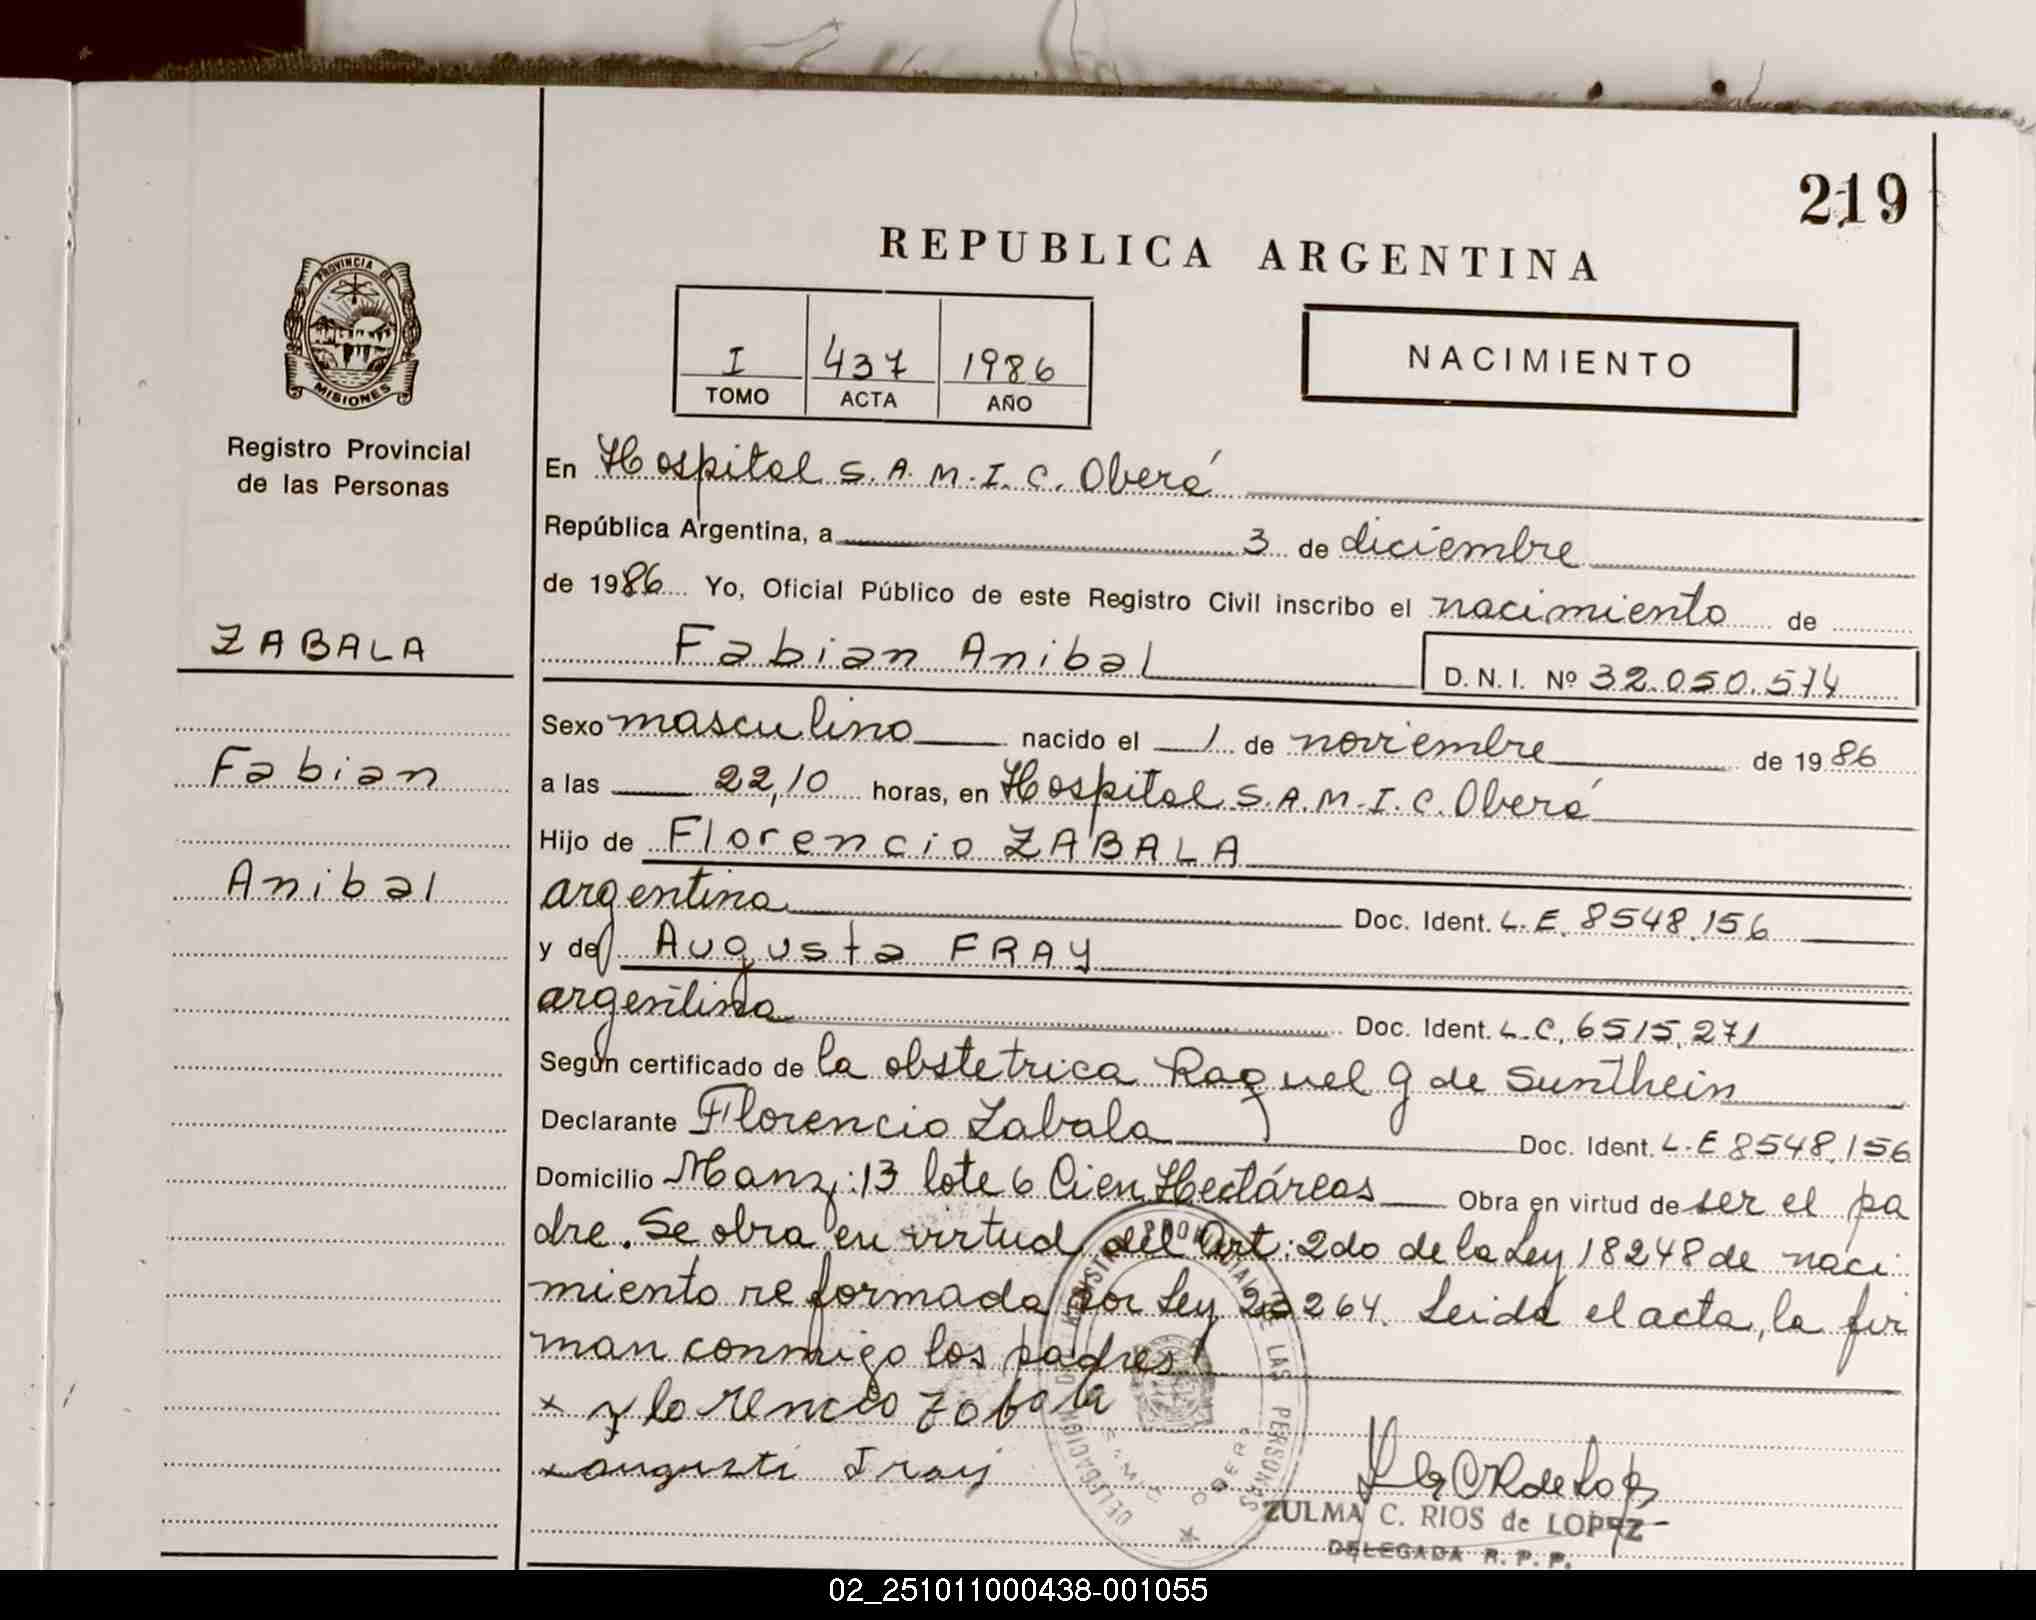 219
REPUBLICA ARGENTINA
PROVINCIA DE
MISIONES
Registro Provincial
de las Personas
I 437 1986
TOMO ACTA AÑO
NACIMIENTO
En Hospital S.A.M.I.C. Oberá
República Argentina, a 3 de diciembre
de 1986 Yo, Oficial Público de este Registro Civil inscribo el nacimiento de
ZABALA
Fabian Anibal D.N.I. Nº 32.050.574
Sexo masculino nacido el 1 de noviembre de 1986
Fabian
a las 22,10 horas, en Hospital S.A.M.I.C. Oberá
Hijo de Florencio ZABALA
Anibal
argentina Doc. Ident. L.E. 8548.156
y de Augusta FRAY
argentina Doc. Ident. L.C. 6515.271
Según certificado de la obstetrica Raquel G de Sunthein
Declarante Florencio Zabala Doc. Ident. L.E 8548.156
Domicilio Manz: 13 lote 6 Cien Hectáreas Obra en virtud de ser el pa
dre. Se obra en virtud del Art: 2do de la Ley 18248 de naci
miento reformada por Ley 23264. Leida el acta, la fir
man conmigo los padres
x Florencio Zabala
x augusta Fray
DELEGACION DEL REGISTRO PROVINCIAL DE LAS PERSONAS
OBERA
ZULMA C. RIOS de LOPEZ
DELEGADA R. P. P.
02_251011000438-001055